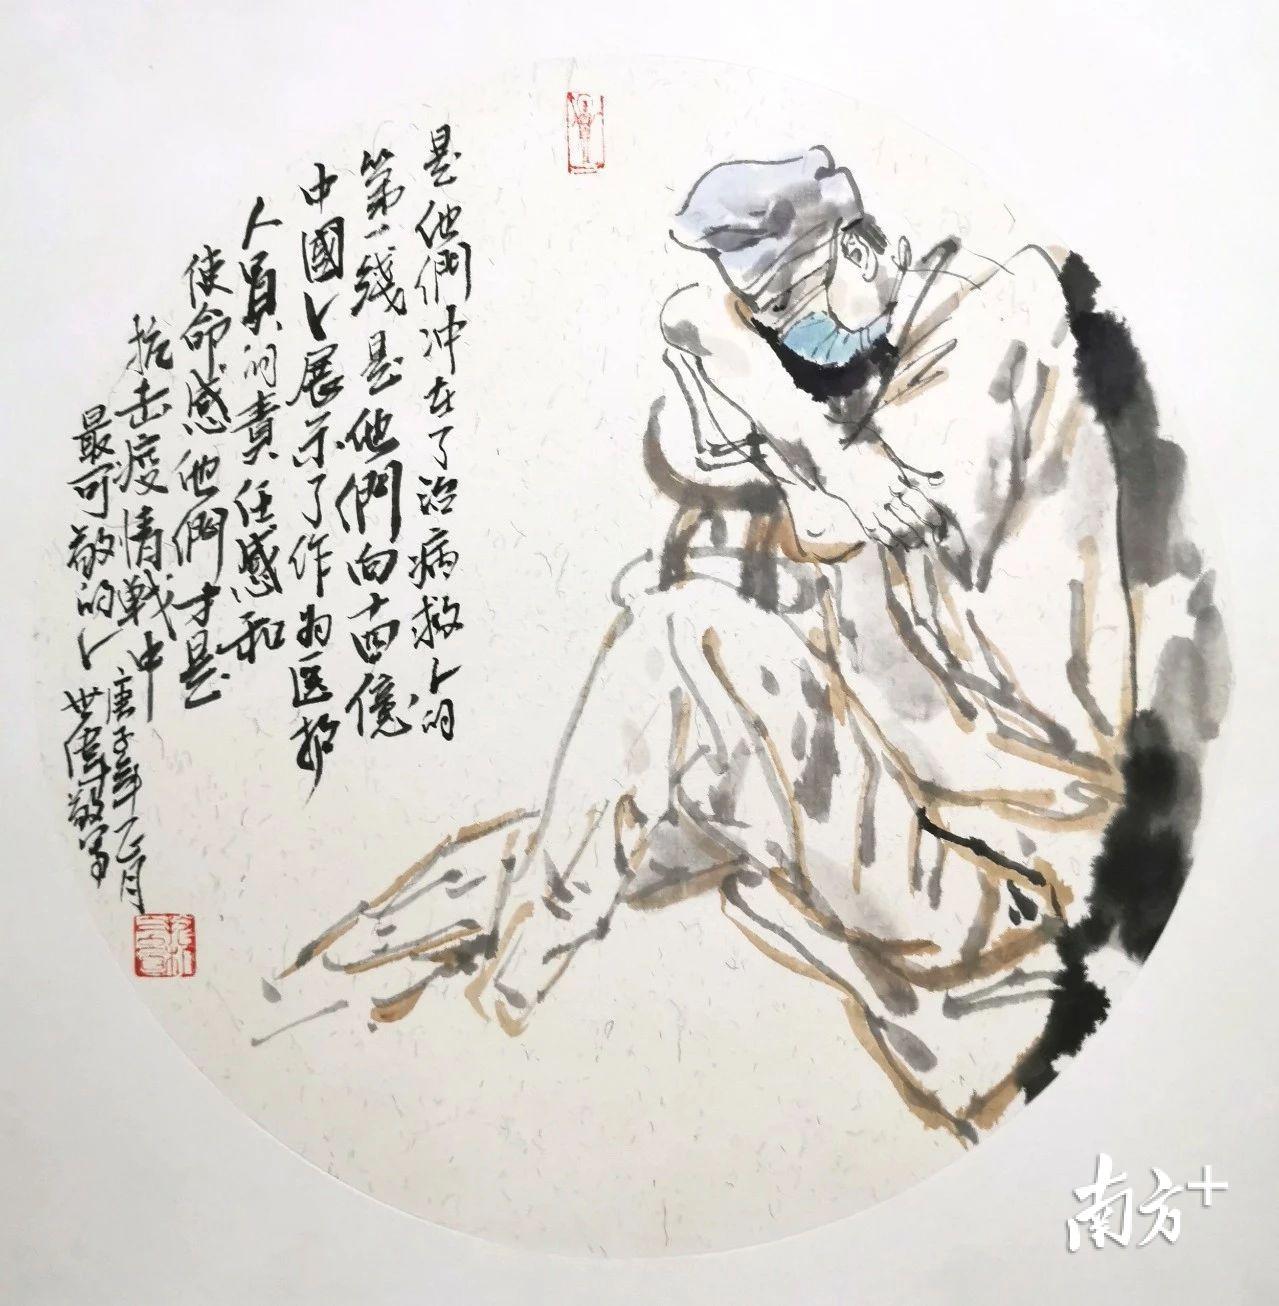 是他們冲在了治病救人的
第一线是他們向十四億
中國人展示了作为医护
人員的責任感和
使命感他們才是
抗击疫情戰中
最可敬的人
庚子年正月
世偉敬写
南方+